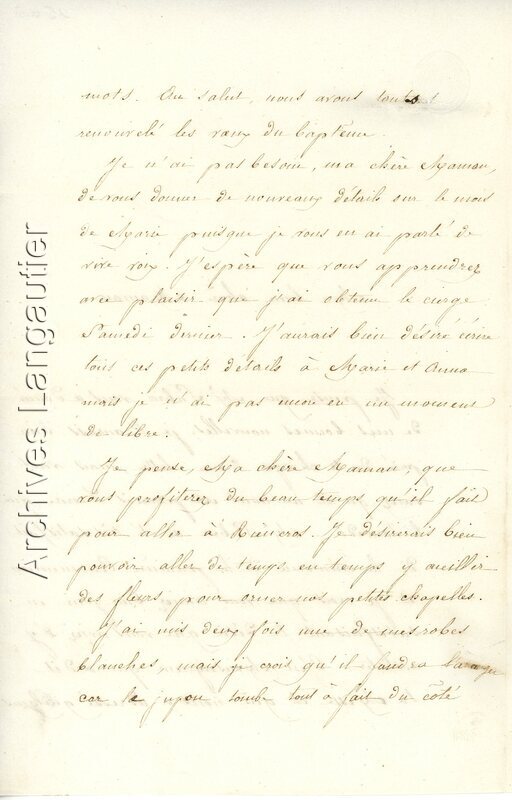 mots. Au salut, nous avons toutes
renouvelé les vœux du baptême.
Je n'ai pas besoin, ma chère Maman,
de vous donner de nouveaux détails sur le mois
de Marie puisque je vous en ai parlé de
vive voix. J'espère que vous apprendrez
avec plaisir que j'ai obtenu le cierge
Samedi dernier. J'aurais bien désiré écrire
tous ces petits détails à Marie et Anna
mais je n'ai pas encore eu un moment
de libre.
Je pense, Ma chère Maman, que
vous profiterez du beau temps qu'il fait
pour aller à Rieucros. Je désirerais bien
pouvoir aller de temps en temps y cueillir
des fleurs pour orner nos petites chapelles.
J'ai mis deux fois une de mes robes
blanches, mais je crois qu'il faudra
car le jupon tombe tout à fait du côté
Archives Langautier